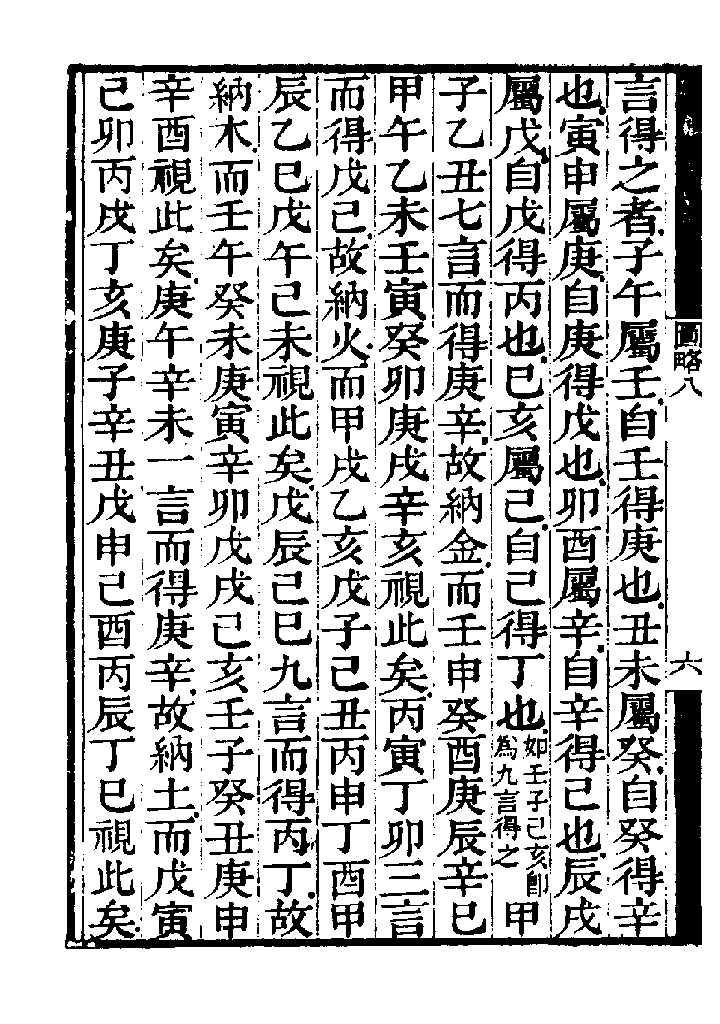 圖略八
六
言得之者子午屬壬自壬得庚也丑未屬癸自癸得辛
也寅申屬庚自庚得戊也卯酉屬辛自辛得己也辰戌
屬戊自戊得丙也巳亥屬己自己得丁也如壬子己亥卽為九言得之甲
子乙丑七言而得庚辛故納金而壬申癸酉庚辰辛巳
甲午乙未壬寅癸卯庚戌辛亥視此矣丙寅丁卯三言
而得戊己故納火而甲戌乙亥戊子己丑丙申丁酉甲
辰乙巳戊午己未視此矣戊辰己巳九言而得丙丁故
納木而壬午癸未庚寅辛卯戊戌己亥壬子癸丑庚申
辛酉視此矣庚午辛未一言而得庚辛故納土而戊寅
己卯丙戌丁亥庚子辛丑戊申己酉丙辰丁巳視此矣